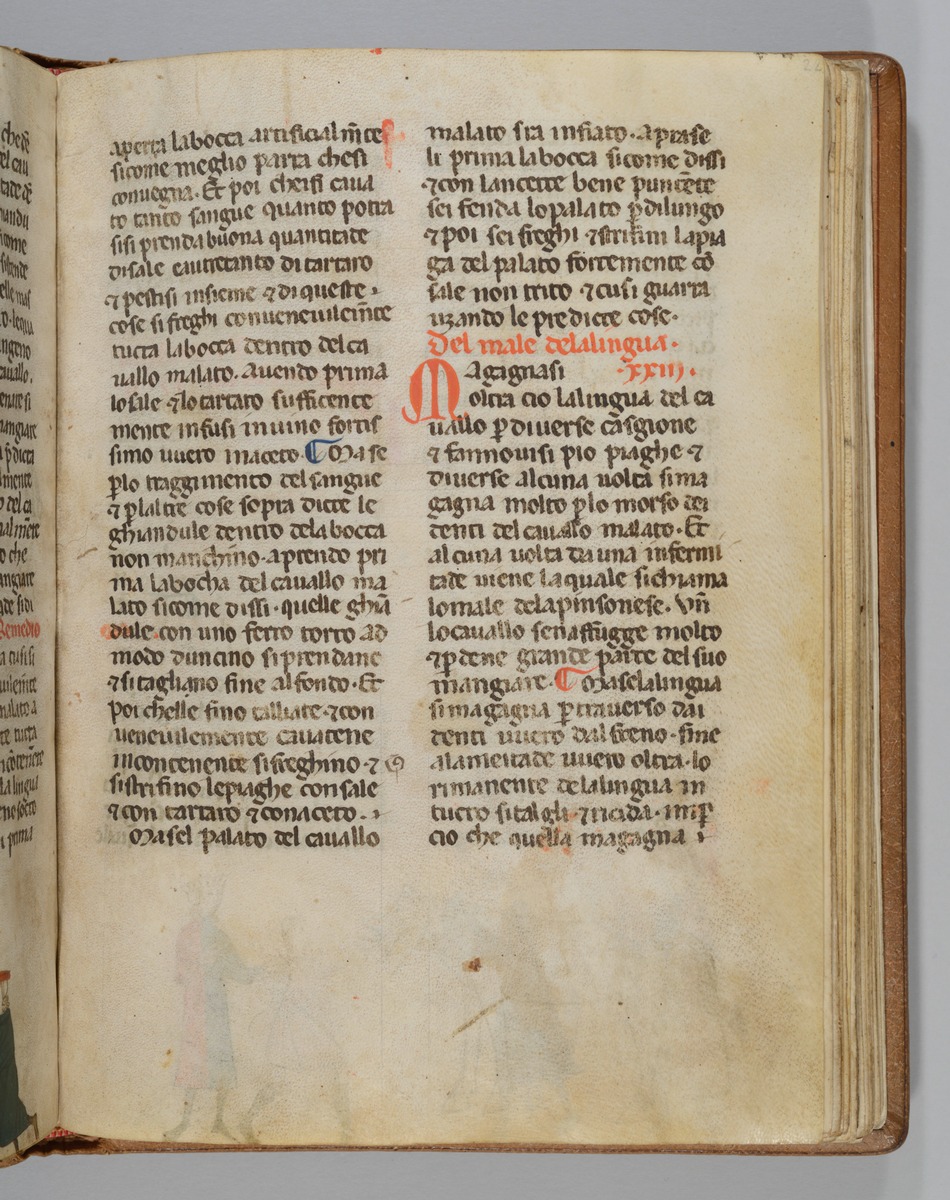 aperta labocca artificialm̅te
sicome meglio parra chesi
conuegna. Et poi cheisi caua
to tanto sangue quanto potra
sisi prenda buona quantitate
disale eautretanto di tartaro
⁊ pestisi insieme ⁊ di queste
cose si freghi conueneuilem̅te
tucta labocca dentro del ca
uallo malato. Auendo prima
losale ⁊ lo tartaro sufficente
mente infusi in uino fortis
simo uuero inaceto. Mase
ꝑlo traggimento del sangue
⁊ ꝑlaltre cose sopra dicte le
ghiandule dentro dela bocca
non manchino. aprendo pri
ma labocha del cauallo ma
lato sicome dissi. quelle ghia̅
dule con uno ferro torto ad
modo duncino si prendane
⁊ si tagliano fine al fondo. Et
poi chelle sino talliate. ⁊ con
ueneuilemente cauatene
incontenente sisfreghino. ⁊
sistrifino lepiaghe con sale
⁊ con tartaro ⁊ conaceto.
Masel palato del cauallo
malato sia infiato. apiase
li prima labocca sicome dissi
⁊ con lancette bene punce̅te
sei fenda lopalato ꝑ dilungo
⁊ poi sei freghi ⁊ strifini lapia
ga del palato fortemente co̅
sale non trito ⁊ cusi guarra
uzando le predicte cose.
Del male delalingua.
Magagnasi .xxiij.
oltra cio lalingua del ca
uallo ꝑ diuerse casgione
⁊ fannouisi pio piaghe ⁊
diuerse alcuna uolta si ma
gagna molto ꝑlo morso dei
denti del cauallo malato. Et
alcuna uolta da una infermi
tade uiene la quale si chiama
lomale delapinsonese. Vn̅
locauallo senaffugge molto
⁊ ꝑdene grande parte del suo
mangiare. Maselalingua
simagagna ꝑ trauerso dai
denti uuero dal freno. fine
alameitade uuero oltra. lo
rimanente delalingua in
tucto sitalgli. ⁊ ricida. imꝑ
cio che quella magagna